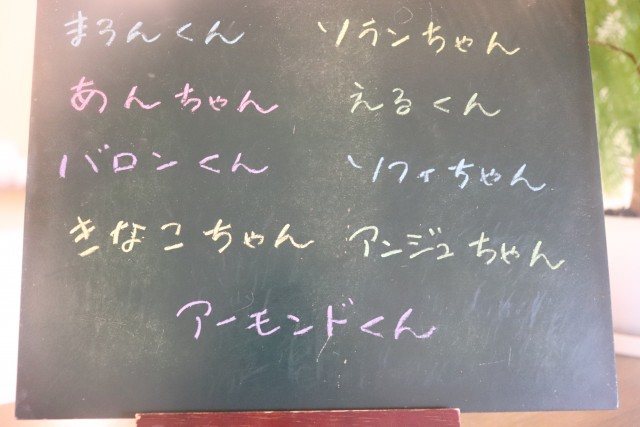 まろんくん ソランちゃん
あんちゃん えるくん
バロンくん ソフィちゃん
きなこちゃん アンジュちゃん
アーモンドくん